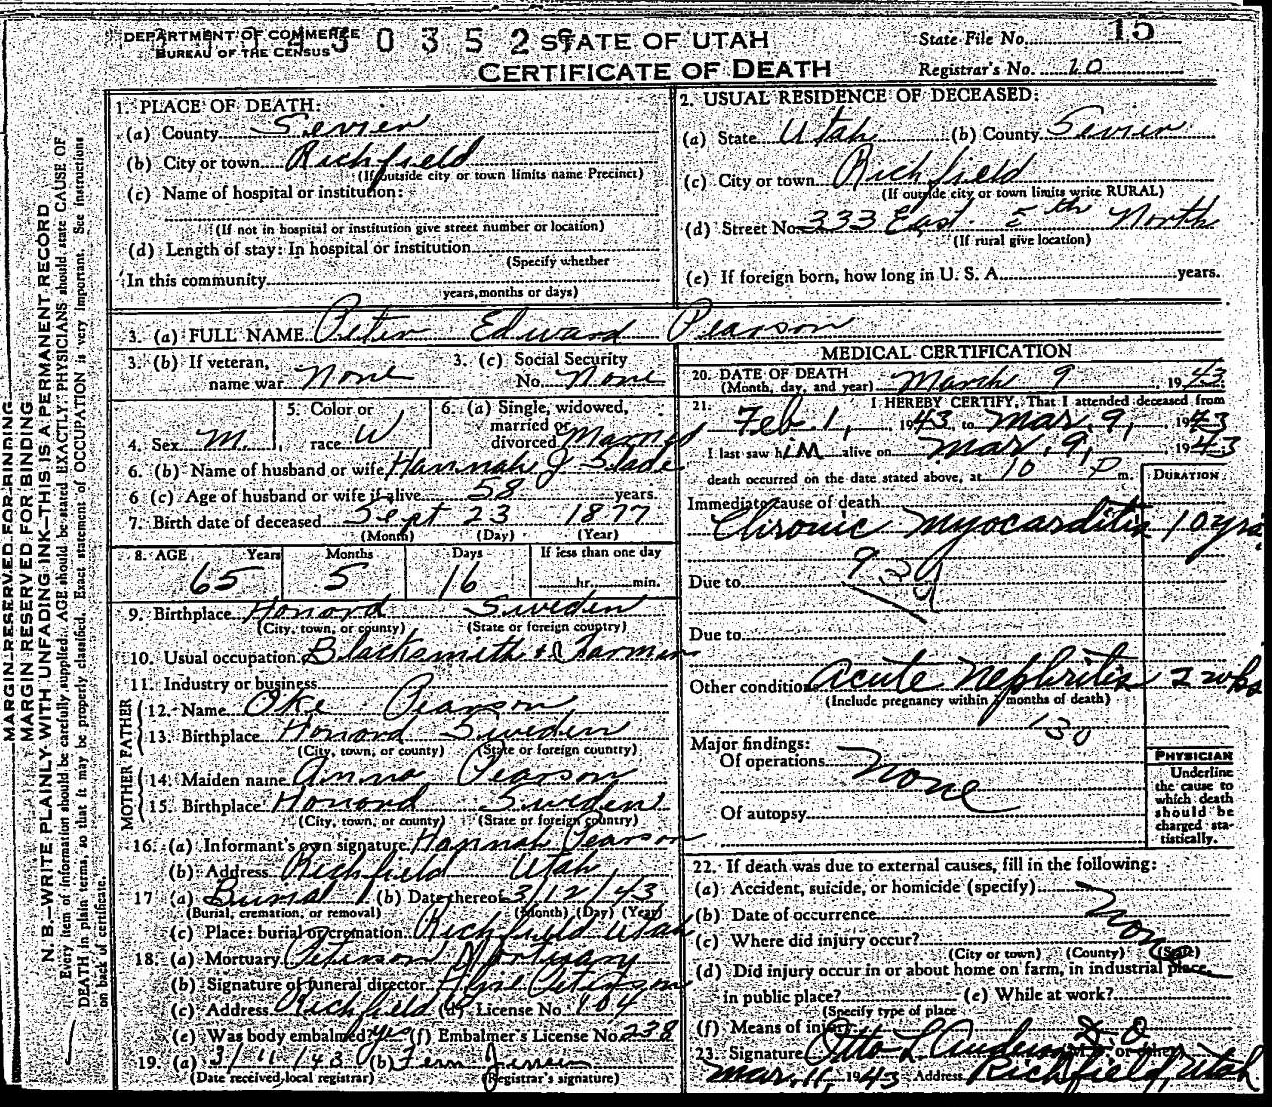 DEPARTMENT OF COMMERCE
BUREAU OF THE CENSUS
3 0 3 5 2
STATE OF UTAH
CERTIFICATE OF DEATH
State File No. 15
Registrar's No. 10
MARGIN RESERVED FOR BINDING
MARGIN RESERVED FOR BINDING
N. B.—WRITE PLAINLY WITH UNFADING INK—THIS IS A PERMANENT RECORD
Every item of information should be carefully supplied. AGE should be stated EXACTLY. PHYSICIANS should state CAUSE OF
DEATH in plain terms, so that it may be properly classified. Exact statement of OCCUPATION is very important. See instructions
on back of certificate.
1. PLACE OF DEATH:
(a) County Sevier
(b) City or town Richfield
(If outside city or town limits name Precinct)
(c) Name of hospital or institution:
(If not in hospital or institution give street number or location)
(d) Length of stay: In hospital or institution
(Specify whether
In this community
years, months or days)
2. USUAL RESIDENCE OF DECEASED:
(a) State Utah (b) County Sevier
(c) City or town Richfield
(If outside city or town limits write RURAL)
(d) Street No. 333 East 5th North
(If rural give location)
(e) If foreign born, how long in U. S. A. years.
3. (a) FULL NAME Peter Edward Pearson
3. (b) If veteran,
name war None
3. (c) Social Security
No. None
4. Sex M.
5. Color or
race W
6. (a) Single, widowed,
married or
divorced Married
6. (b) Name of husband or wife Hannah J Slade
6 (c) Age of husband or wife if alive 58 years.
7. Birth date of deceased Sept 23 1877
(Month) (Day) (Year)
8. AGE Years Months Days If less than one day
65 5 16 hr. min.
9. Birthplace Honord Sweden
(City, town, or county) (State or foreign country)
10. Usual occupation Blacksmith & Farmer
11. Industry or business
FATHER
12. Name Oke Pearson
13. Birthplace Honord Sweden
(City, town, or county) (State or foreign country)
MOTHER
14. Maiden name Anna Pearson
15. Birthplace Honord Sweden
(City, town, or county) (State or foreign country)
16. (a) Informant's own signature Hannah Pearson
(b) Address Richfield Utah
17 (a) Burial (b) Date thereof 3/12/43
(Burial, cremation, or removal) (Month) (Day) (Year)
(c) Place: burial or cremation Richfield Utah
18. (a) Mortuary Peterson Mortuary
(b) Signature of funeral director Peterson
(c) Address Richfield (d) License No. 104
(e) Was body embalmed? yes (f) Embalmer's License No. 238
19. (a) 3/11/43 (b) Fern Jensen
(Date received local registrar) (Registrar's signature)
MEDICAL CERTIFICATION
20. DATE OF DEATH
(Month, day, and year) March 9 1943
21. I HEREBY CERTIFY, That I attended deceased from
Feb. 1, 1943, to Mar. 9, 1943
I last saw him alive on Mar. 9, 1943
death occurred on the date stated above, at 10 P m.
DURATION
Immediate cause of death
Chronic Myocarditis 10 yrs.
Due to 93d
Due to
Other conditions Acute Nephritis 2 wks
(Include pregnancy within 3 months of death)
130
Major findings:
Of operations None
Of autopsy
PHYSICIAN
Underline
the cause to
which death
should be
charged sta-
tistically.
22. If death was due to external causes, fill in the following:
(a) Accident, suicide, or homicide (specify)
(b) Date of occurrence None
(c) Where did injury occur?
(City or town) (County) (State)
(d) Did injury occur in or about home on farm, in industrial place,
in public place? (e) While at work?
(Specify type of place
(f) Means of injury
23. Signature Otto L. Anderson D.O.
M. D. or other
Mar. 11, 1943 Address Richfield, Utah